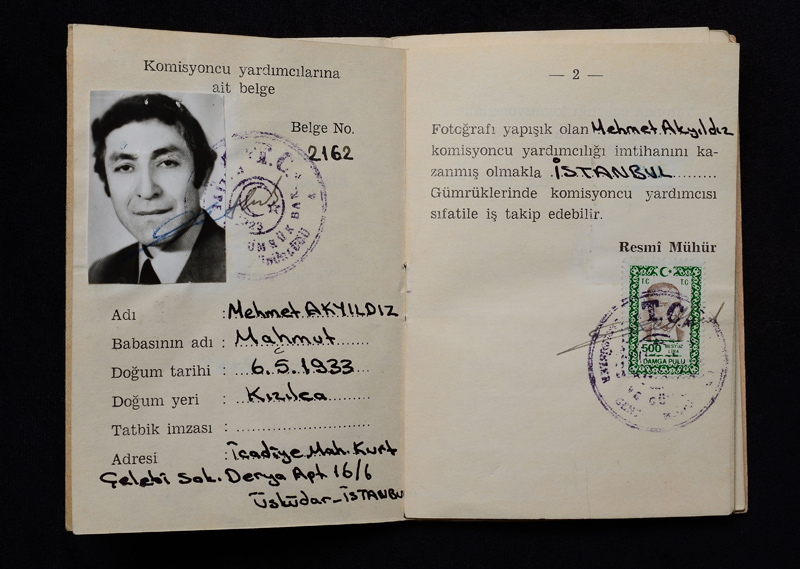 Komisyoncu yardımcılarına
ait belge
Belge No.
2162
T.C.
Adı : Mehmet AKYILDIZ
Babasının adı : Mahmut
Doğum tarihi : 6.5.1933
Doğum yeri : Kızılca
Tatbik imzası :
Adresi : İcadiye Mah. Kurt
Çelebi Sok. Derya Apt 16/6
Üsküdar-İSTANBU
— 2 —
Fotoğrafı yapışık olan Mehmet Akyıldız
komisyoncu yardımcılığı imtihanını ka-
zanmış olmakla İSTANBUL
Gümrüklerinde komisyoncu yardımcısı
sıfatile iş takip edebilir.
Resmî Mühür
T.C T.C
T.C.
500
DAMGA PULU